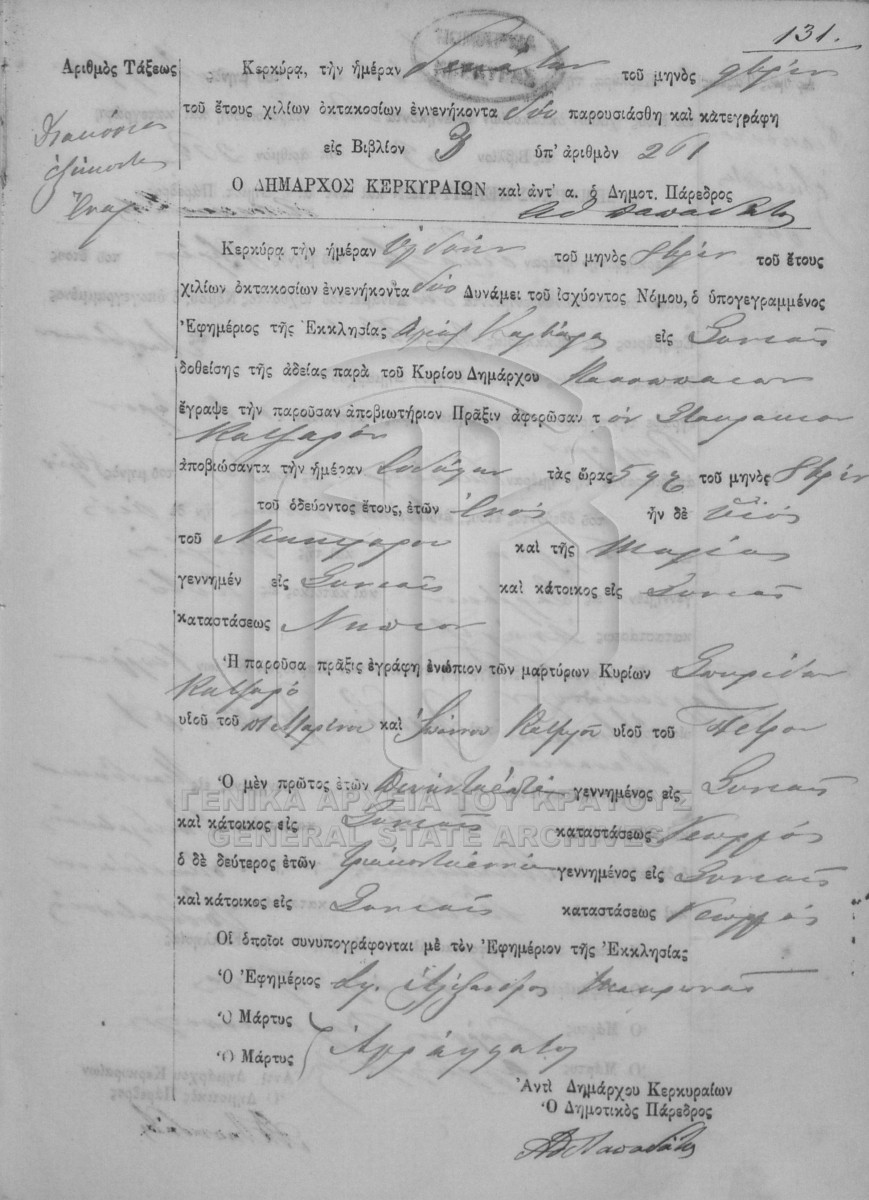 131.
Ἀριθμὸς Τάξεως
Διακόσια
ἑξήκοντα
Ἕνα
Κερκύρᾳ, τὴν ἡμέραν Δεκάτην τοῦ μηνὸς 9βρίου
τοῦ ἔτους χιλίων ὀκτακοσίων ἐννενήκοντα δύο παρουσιάσθη καὶ κατεγράφη
εἰς Βιβλίον 3 ὑπ' ἀριθμὸν 261
Ὁ ΔΗΜΑΡΧΟΣ ΚΕΡΚΥΡΑΙΩΝ καὶ ἀντ' α. ὁ Δημοτ. Πάρεδρος
Κερκύρᾳ τὴν ἡμέραν Ὀγδόην τοῦ μηνὸς 8βρίου τοῦ ἔτους
χιλίων ὀκτακοσίων ἐννενήκοντα δύο Δυνάμει τοῦ ἰσχύοντος Νόμου, ὁ ὑπογεγραμμένος
Ἐφημέριος τῆς Ἐκκλησίας Ἁγίας Βαρβάρας εἰς Συνιαῖς
δοθείσης τῆς ἀδείας παρὰ τοῦ Κυρίου Δημάρχου Κασσωπαίων
ἔγραψε τὴν παροῦσαν ἀποβιωτήριον Πρᾶξιν ἀφορῶσαν τ ὸν Σταυριανὸν
Κατζαρὸν
ἀποβιώσαντα τὴν ἡμέραν Ἑβδόμην τὰς ὥρας 5 μ μ τοῦ μηνὸς 8βρίου
τοῦ ὁδεύοντος ἔτους, ἐτῶν Ἑνός ἦν δὲ υἱός
τοῦ Νικηφόρου καὶ τῆς Μαρίας
γεννημέν εἰς Συνιαῖς καὶ κάτοικος εἰς Συνιαῖς
καταστάσεως Νήπιον
Ἡ παροῦσα πρᾶξις ἐγράφη ἐνώπιον τῶν μαρτύρων Κυρίων Σπυρίδων
Κατζαρὸ
υἱοῦ τοῦ Μαρίνου καὶ Ἰωάννου Κατζαροῦ υἱοῦ τοῦ Πέτρου
Ὁ μὲν πρῶτος ἐτῶν γεννημένος εἰς Συνιαῖς
καὶ κάτοικος εἰς Συνιαῖς καταστάσεως Γεωργός
ὁ δὲ δεύτερος ἐτῶν γεννημένος εἰς Συνιαῖς
καὶ κάτοικος εἰς Συνιαῖς καταστάσεως Γεωργός
Οἱ ὁποῖοι συνυπογράφονται μὲ τὸν Ἐφημέριον τῆς Ἐκκλησίας
Ὁ Ἐφημέριος Ἀλέξανδρος Μακρυνᾶς
Ὁ Μάρτυς
Ὁ Μάρτυς Ἀγράμματοι
Ἀντὶ Δημάρχου Κερκυραίων
Ὁ Δημοτικὸς Πάρεδρος
ΓΕΝΙΚΑ ΑΡΧΕΙΑ ΤΟΥ ΚΡΑΤΟΥΣ
GENERAL STATE ARCHIVES